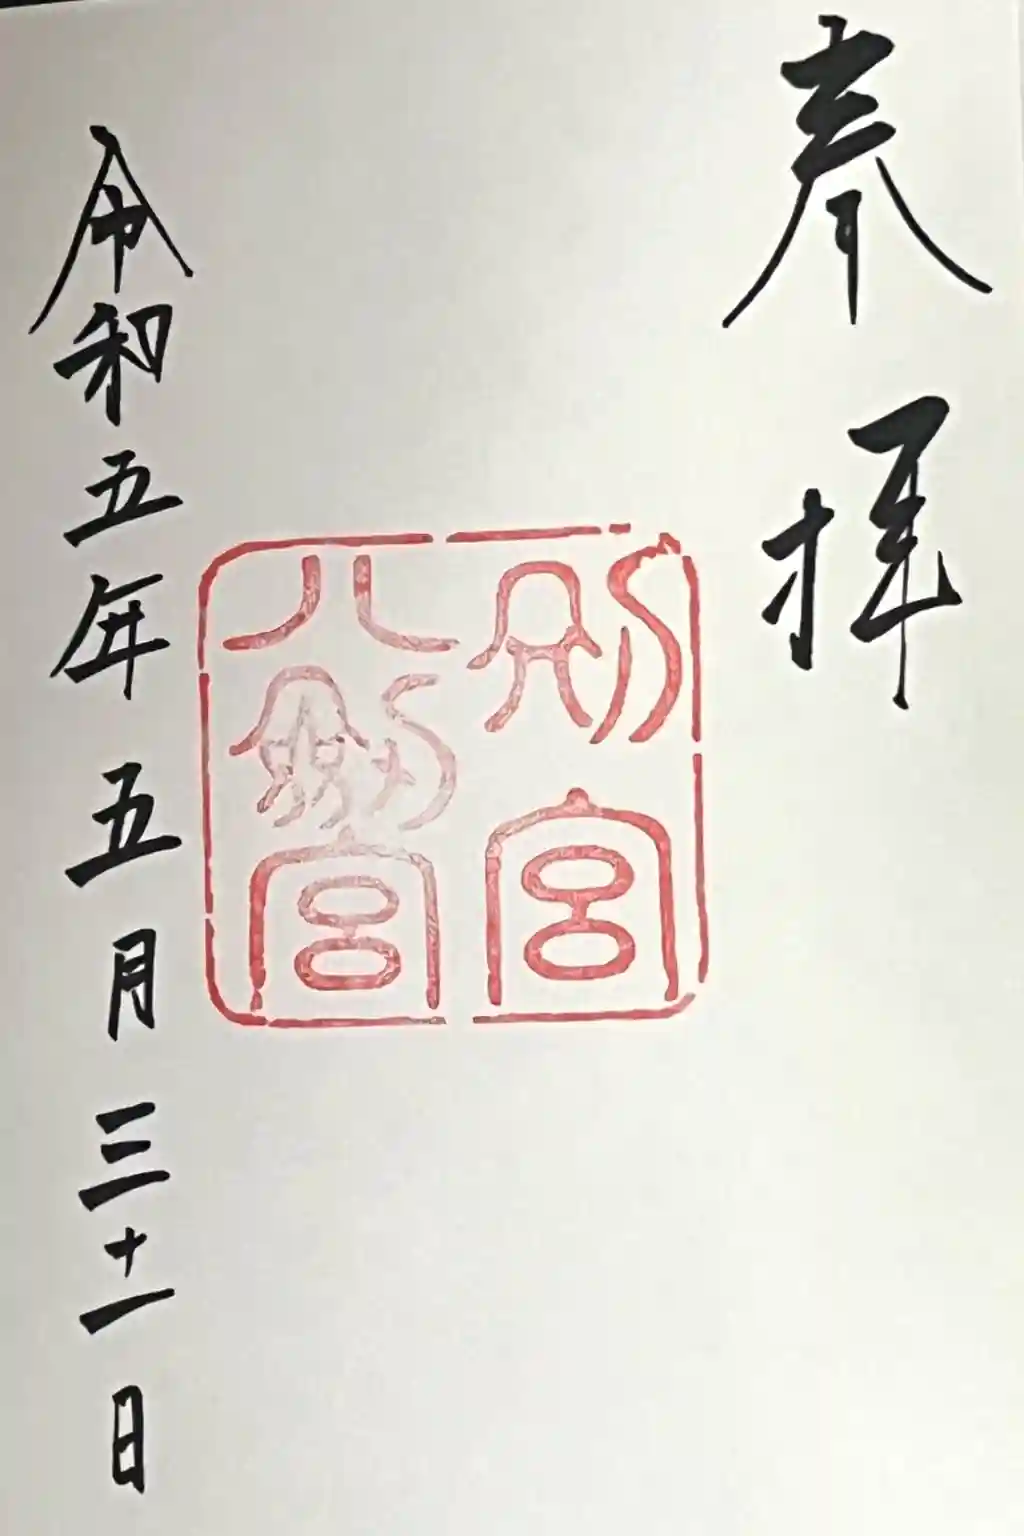 奉拝
別宮
八劔宮
令和五年五月三十一日